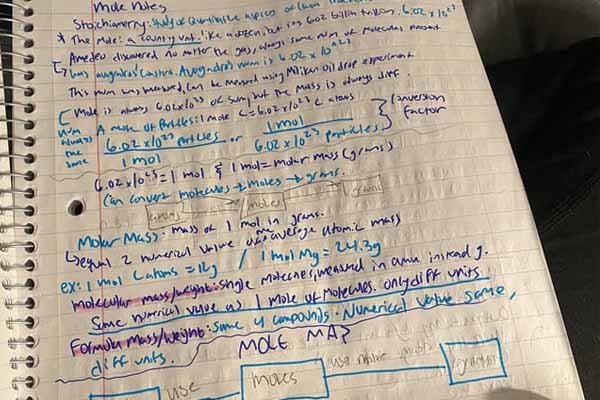 Mole Notes
Stoichiometry: Study of Quantitative aspects of chem
* The Mole: a counting unit. like a dozen, but its 602 billion trillion. 6.02 x 10^23
discovered no matter the gas, always same num of molecules present
num is 6.02 x 10^23
This num was measured, can be measured using Milikan Oil drop experiment
Mole is always 6.02x10^23 of sum, but the Mass is always diff.
num always the same
A mole of Particles: 1 mole C = 6.02x10^23 C atoms
6.02 x 10^23 Particles / 1 mol or 1 mol / 6.02 x 10^23 particles
Conversion Factor
6.02 x 10^23 = 1 mol & 1 mol = Molar Mass (grams)
Can convert molecules → Moles → grams.
moles
Molar Mass: mass of 1 mol in grams.
equal 2 numerical value of the average atomic mass
ex: 1 mol C atoms = 12g / 1 mol Mg = 24.3g
Molecular mass/weight: single molecules, measured in amu instead g.
Same numerical value as 1 mole of Molecules. only diff units.
Formula Mass/weight: Same 4 compounds. Numerical value same,
diff units.
MOLE MAP
use
Moles
use molar mass
grams